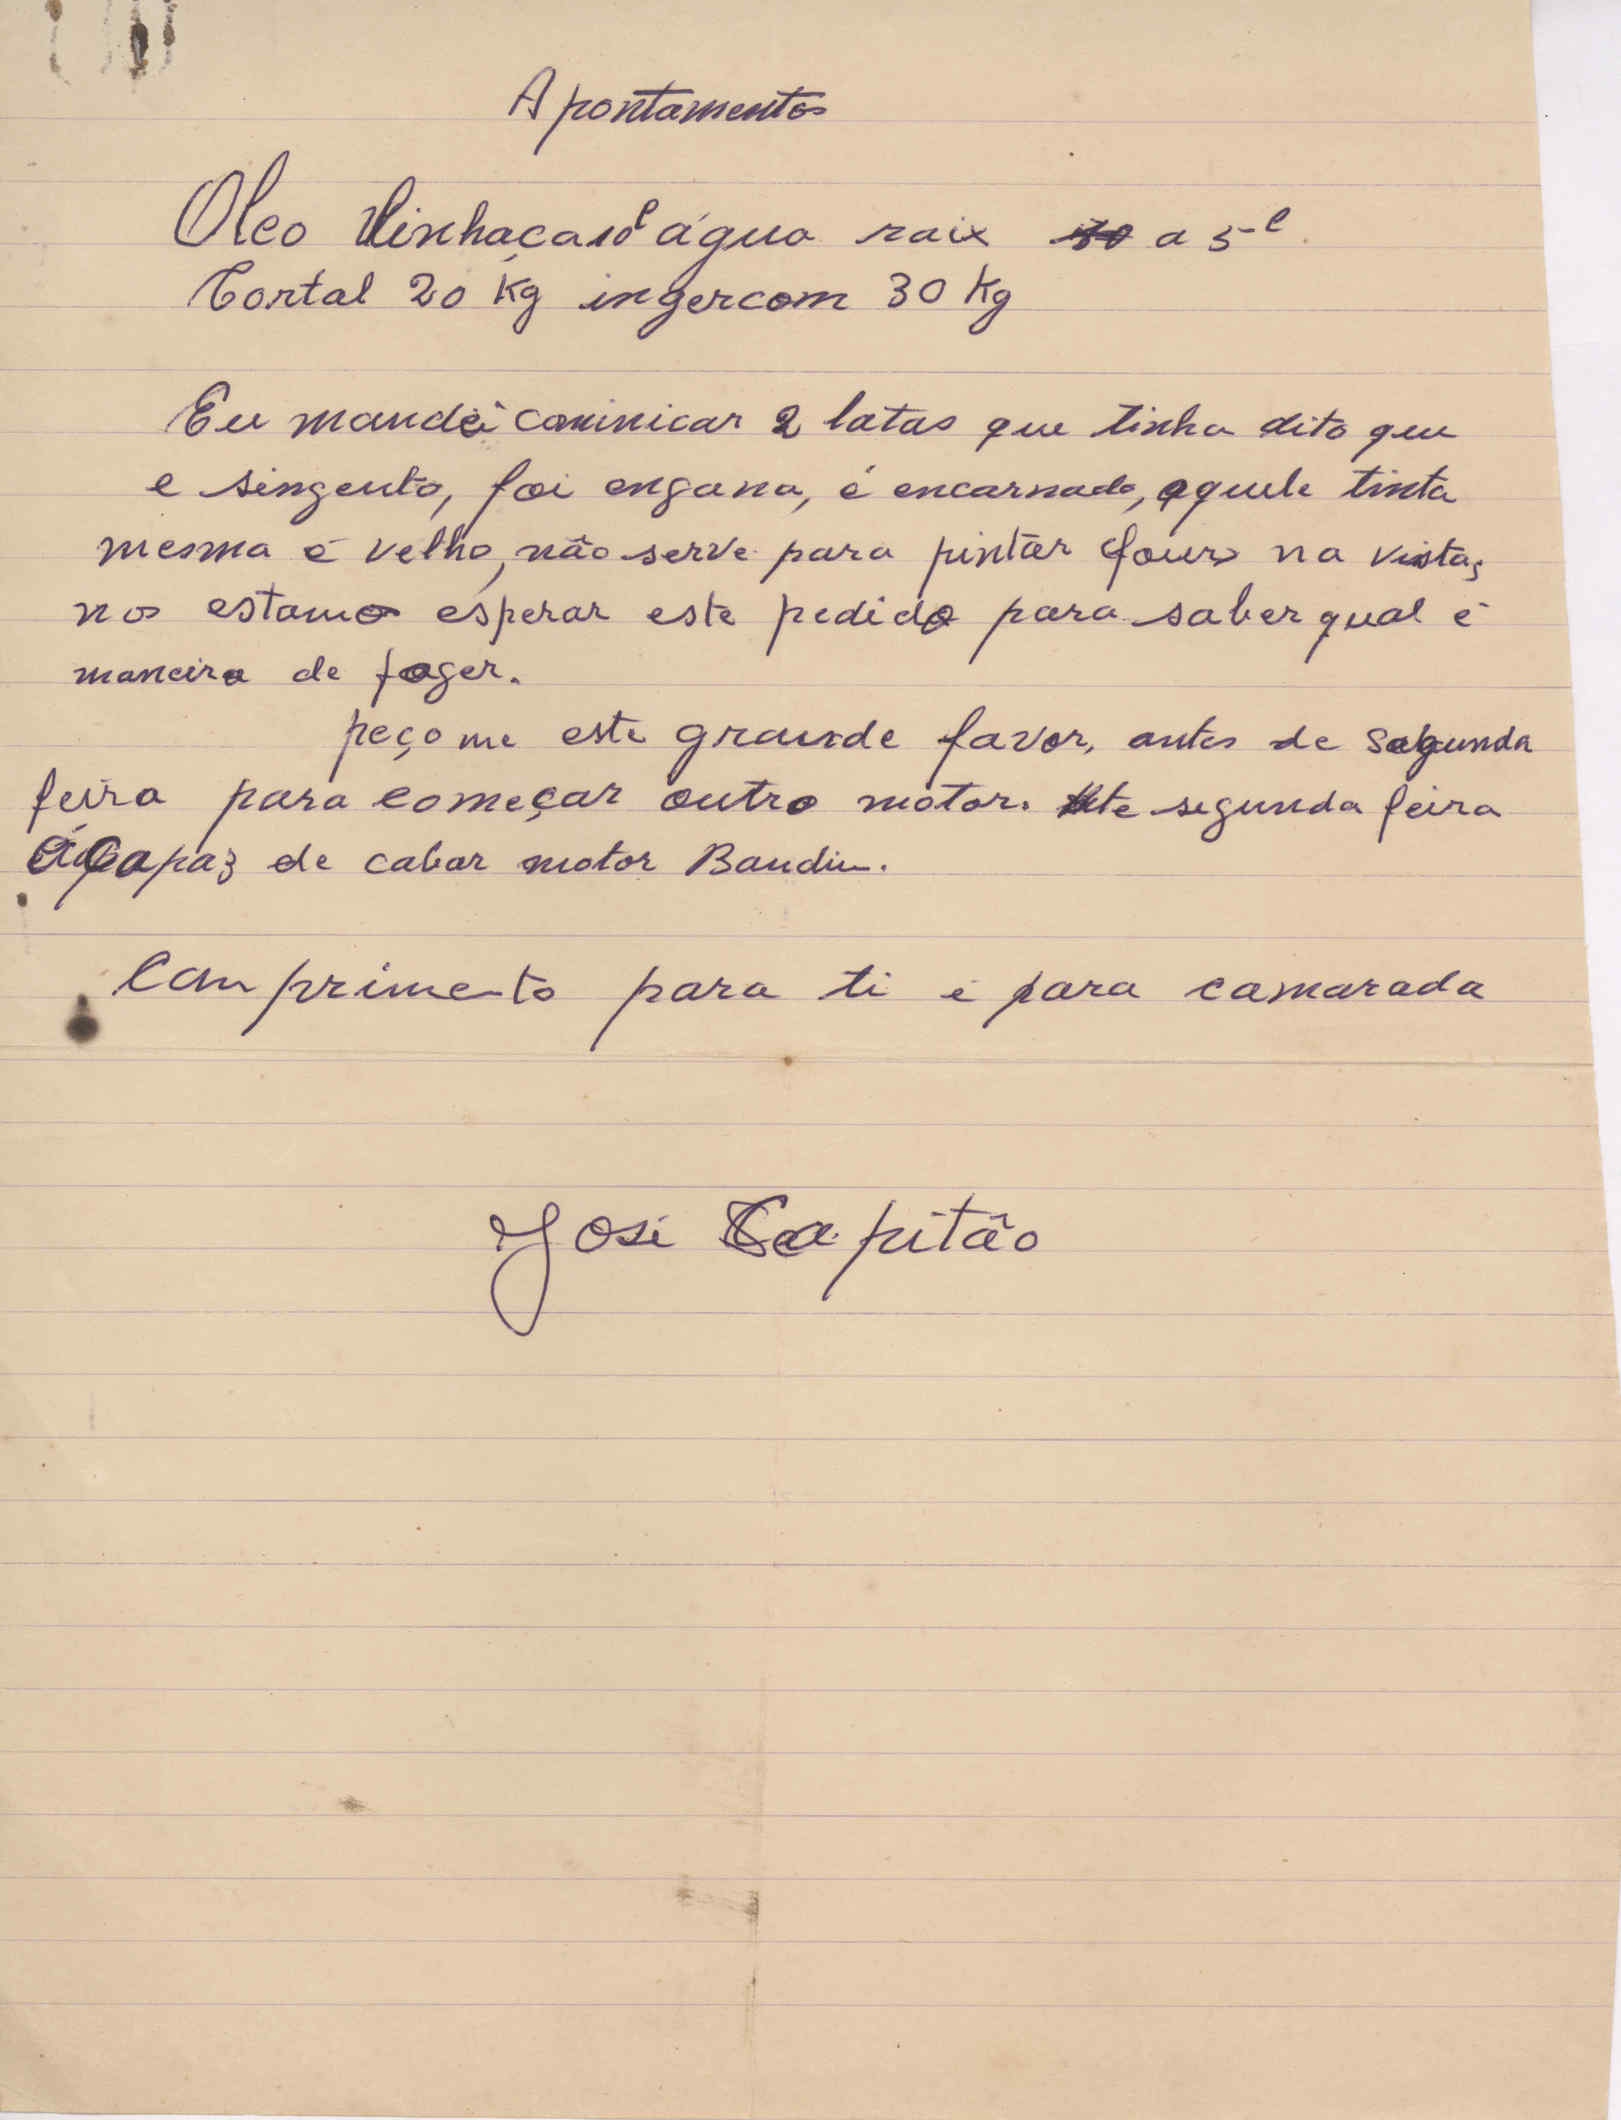 Apontamentos
Oleo linhaça 10 l água raix a 5 l
Tortal 20 Kg ingercom 30 Kg
Eu mandei cominicar 2 latas que tinha dito que
e singento, foi engana, é encarnado, aquele tinta
mesma é velho, não serve para pintar na vista,
nos estamos esperar este pedido para saber qual é
maneira de fazer.
peço me este grande favor, antes de segunda
feira para começar outro motor. Ate segunda feira
capaz de cabar motor Baudin.
Comprimento para ti e para camarada
José Capitão